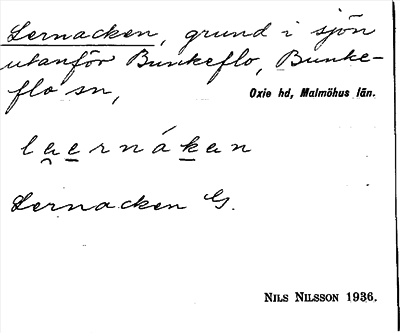 Lernacken, grund i sjön
utanför Bunkeflo, Bunke-
flo sn,
Oxie hd, Malmöhus län.
laernáken
Lernacken G.
NILS NILSSON 1936.